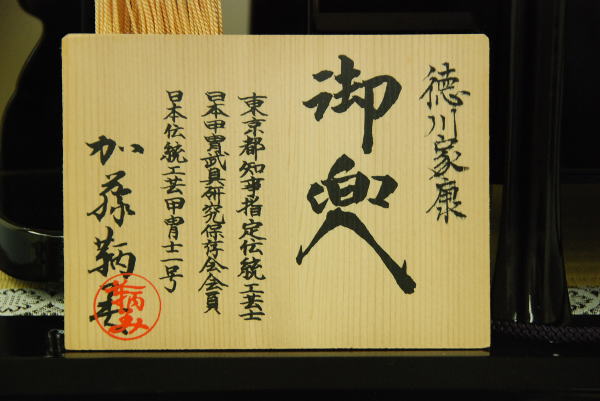 徳川家康
御兜
東京都知事指定伝統工芸士
日本甲冑武具研究保存会会員
日本伝統工芸甲冑士一号
加藤鞆美